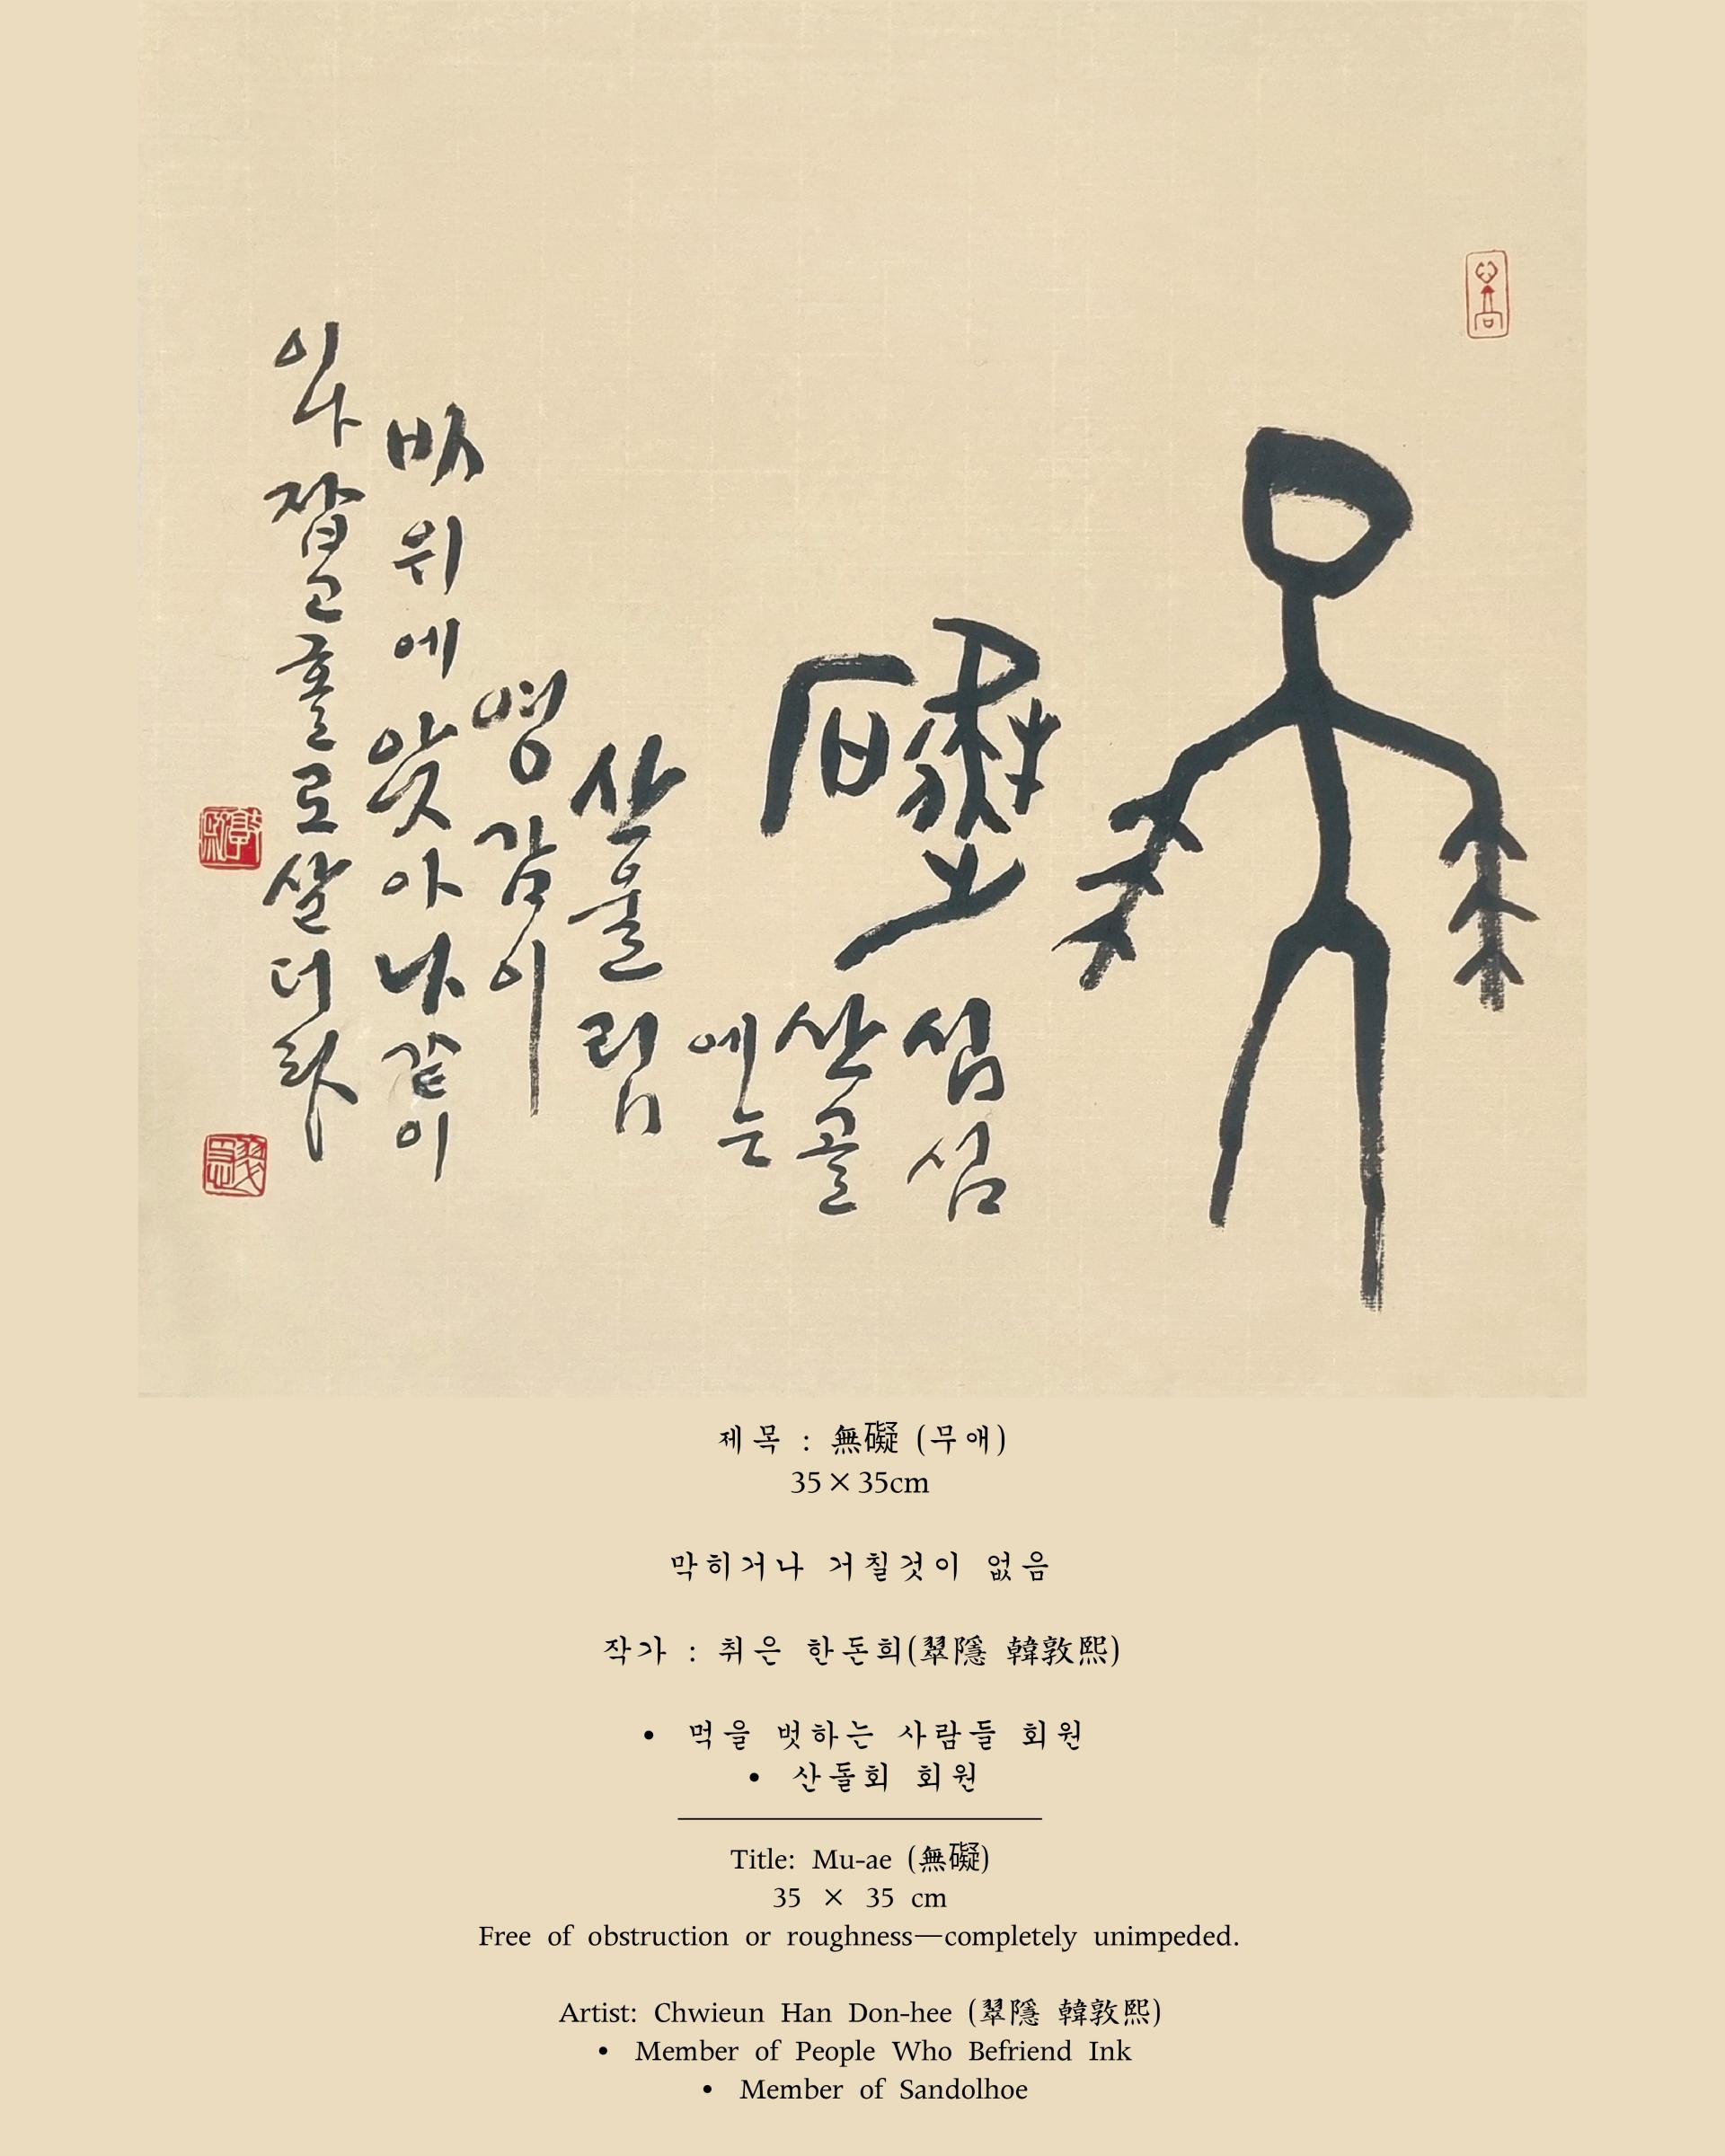 無礙
심심
산골
에는
산울림
영감이
바위에앉아나같이
이나잡고홀로살더라
제목 : 無礙 (무애)
35×35cm
막히거나 거칠것이 없음
작가 : 취은 한돈희(翠隱 韓敦熙)
• 먹을 벗하는 사람들 회원
• 산돌회 회원
Title: Mu-ae (無礙)
35 × 35 cm
Free of obstruction or roughness—completely unimpeded.
Artist: Chwieun Han Don-hee (翠隱 韓敦熙)
• Member of People Who Befriend Ink
• Member of Sandolhoe